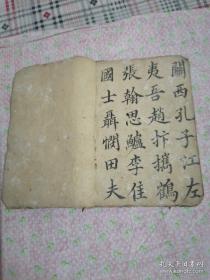 關西孔子江左
夷吾趙抃攜鶴
張翰思鱸李佳
國士聶憫田夫